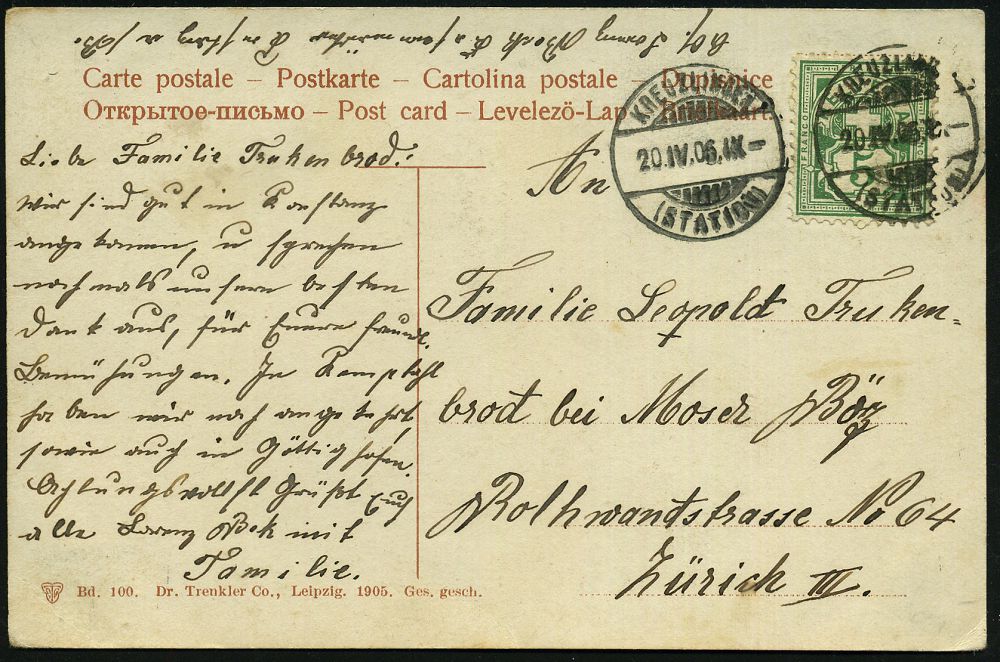 Carte postale – Postkarte – Cartolina postale – Dopisnice
Открытое-письмо – Post card – Levelezö-Lap – Briefkaart
KREUZLINGEN
20.IV.06.IX–
(STATION)
FRANCO
5
KREUZLINGEN
20.IV.06.
(STATION)
Liebe Familie Trukenbrod!
Wir sind gut in Konstanz
angekomen, u sprechen
nochmals unsern besten
Dank aus, für Euere freundl.
Bemühungen. In
haben wir noch angekehrt,
sowie auch in Göttighofen.
Achtungsvollst Grüßt Euch
alle Lorenz Bek mit
Familie.
An
Familie Leopold Truken-
brod bei Moser Böz
Rothwandstrasse No 64
Zürich III.
Bd. 100. Dr. Trenkler Co., Leipzig. 1905. Ges. gesch.